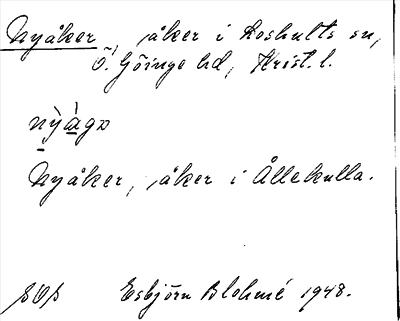 Nyåker, åker i Loshults sn,
Ö. Göinge hd, Krist. l.
nỳàgɒ
Nyåker, åker i Ållekulla.
SOS Esbjörn Blohmé 1948.